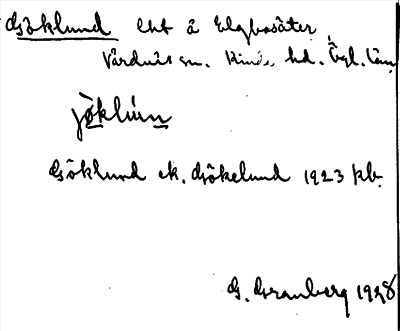 Göklund lht å Elgbosäter,
Vårdnäs sn. Kinds hd. Ögl. län
jö̀klún
Göklund ek. Gökelund 1923 jkb.
G. Granberg 1928